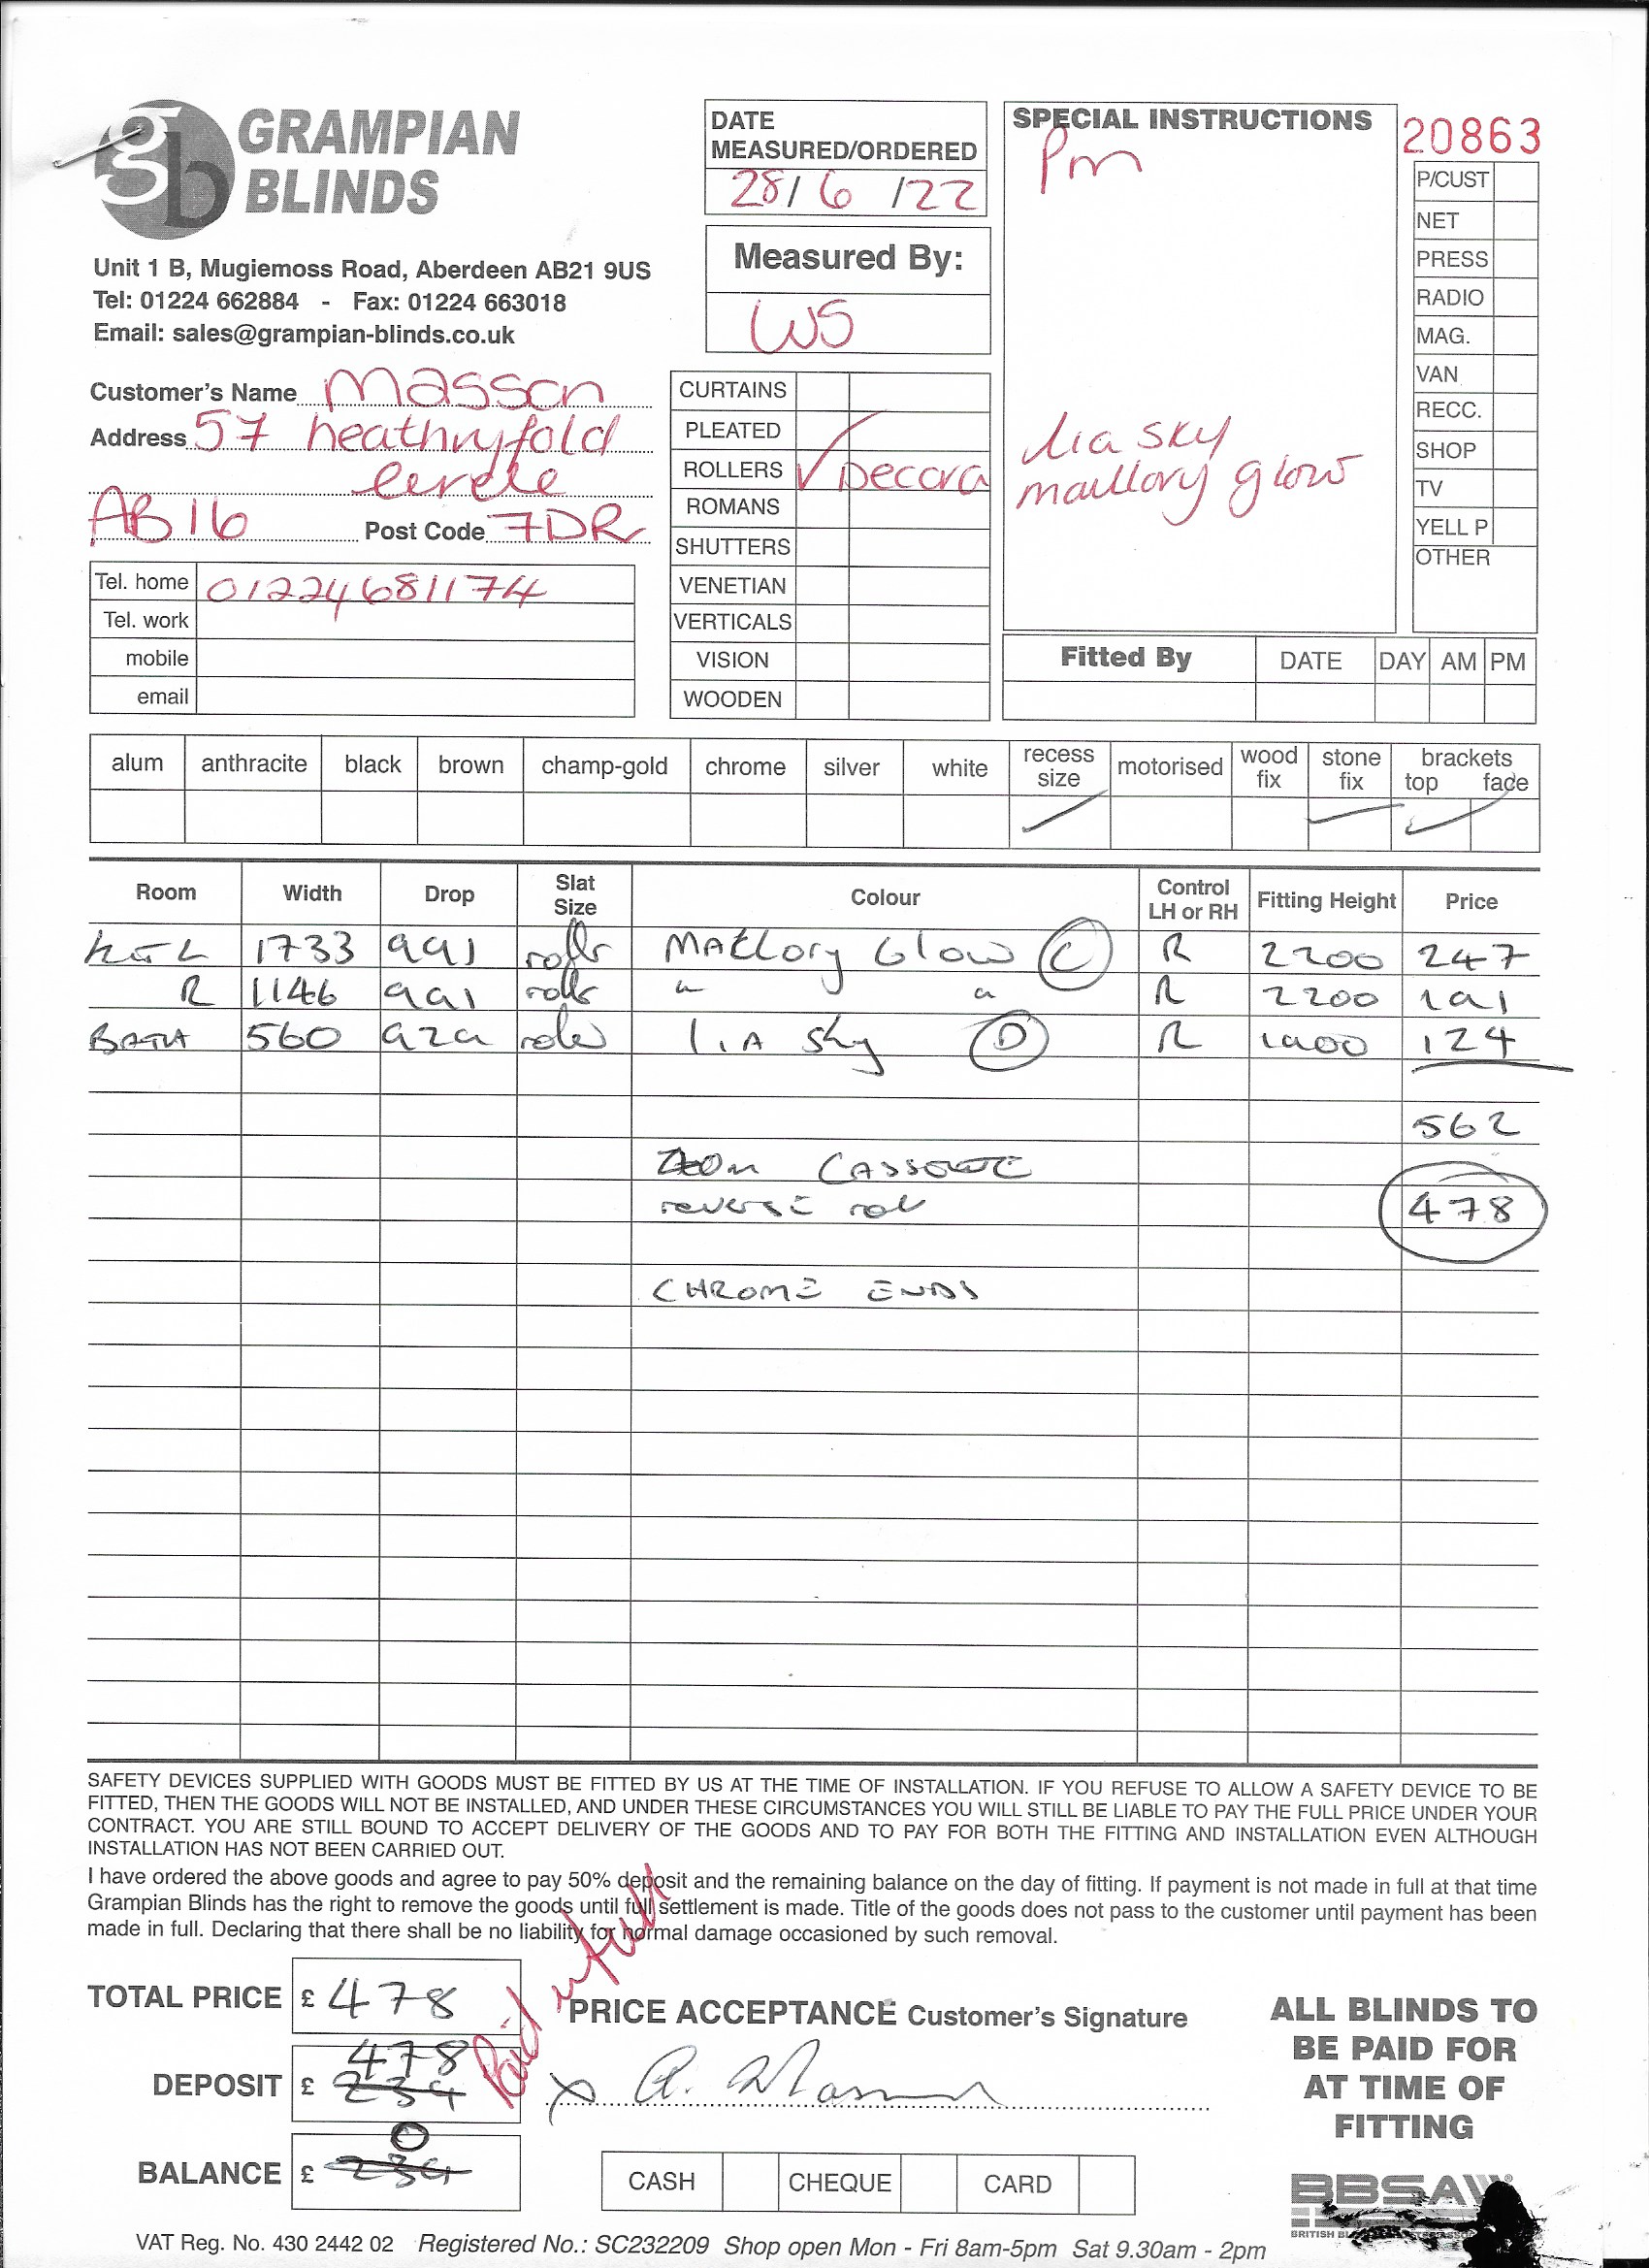 gb GRAMPIAN BLINDS
Unit 1 B, Mugiemoss Road, Aberdeen AB21 9US
Tel: 01224 662884 - Fax: 01224 663018
Email: sales@grampian-blinds.co.uk
DATE
MEASURED/ORDERED
28/ 6 /22
Measured By:
WS
SPECIAL INSTRUCTIONS
Pm
lia sky
mallory glow
20863
P/CUST
NET
PRESS
RADIO
MAG.
VAN
RECC.
SHOP
TV
YELL P
OTHER
Customer's Name Masson
Address 57 heathryfold
circle
AB16 Post Code 7DR
Tel. home 01224681174
Tel. work
mobile
email
CURTAINS
PLEATED
ROLLERS ✓ Decora
ROMANS
SHUTTERS
VENETIAN
VERTICALS
VISION
WOODEN
Fitted By DATE DAY AM PM
alum anthracite black brown champ-gold chrome silver white recess size motorised wood fix stone fix brackets top face
Room Width Drop Slat Size Colour Control LH or RH Fitting Height Price
L 1733 991 Mallory Glow C R 2200 247
R 1146 991 " " R 2200 191
BATH 560 929 LIA Sky D R 1900 124
562
CASSETTE
reverse roll
478
CHROME ENDS
SAFETY DEVICES SUPPLIED WITH GOODS MUST BE FITTED BY US AT THE TIME OF INSTALLATION. IF YOU REFUSE TO ALLOW A SAFETY DEVICE TO BE
FITTED, THEN THE GOODS WILL NOT BE INSTALLED, AND UNDER THESE CIRCUMSTANCES YOU WILL STILL BE LIABLE TO PAY THE FULL PRICE UNDER YOUR
CONTRACT. YOU ARE STILL BOUND TO ACCEPT DELIVERY OF THE GOODS AND TO PAY FOR BOTH THE FITTING AND INSTALLATION EVEN ALTHOUGH
INSTALLATION HAS NOT BEEN CARRIED OUT.
I have ordered the above goods and agree to pay 50% deposit and the remaining balance on the day of fitting. If payment is not made in full at that time
Grampian Blinds has the right to remove the goods until full settlement is made. Title of the goods does not pass to the customer until payment has been
made in full. Declaring that there shall be no liability for normal damage occasioned by such removal.
Paid in full
TOTAL PRICE £ 478
DEPOSIT £ 478 239
BALANCE £ 0 239
PRICE ACCEPTANCE Customer's Signature
x A. Masson
CASH CHEQUE CARD
ALL BLINDS TO
BE PAID FOR
AT TIME OF
FITTING
BBSA
VAT Reg. No. 430 2442 02 Registered No.: SC232209 Shop open Mon - Fri 8am-5pm Sat 9.30am - 2pm